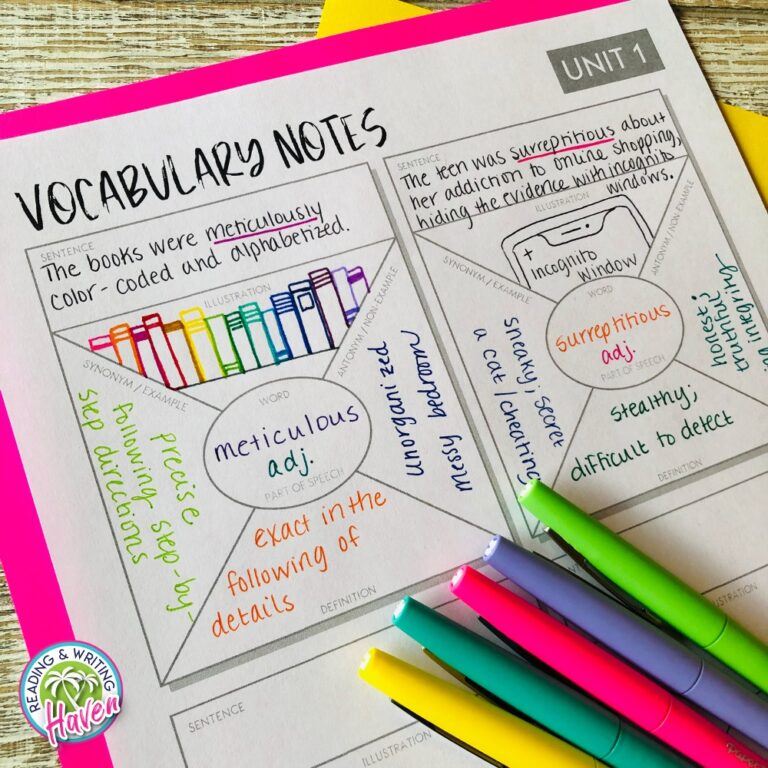 UNIT 1
VOCABULARY NOTES
SENTENCE
The books were meticulously
color-coded and alphabetized.
ILLUSTRATION
SYNONYM / EXAMPLE
precise
following step-by-
step directions
ANTONYM / NON-EXAMPLE
unorganized
messy bedroom
WORD
meticulous
adj.
PART OF SPEECH
exact in the
following of
details
DEFINITION
SENTENCE
The teen was surreptitious about
her addiction to online shopping,
hiding the evidence with incognito
windows.
ILLUSTRATION
+
incognito
window
SYNONYM / EXAMPLE
sneaky; secret
a cat/cheating
ANTONYM / NON-EXAMPLE
honest;
truthful
WORD
surreptitious
adj.
PART OF SPEECH
stealthy;
difficult to detect
DEFINITION
SENTENCE
ILLUSTRATION
READING & WRITING
Haven